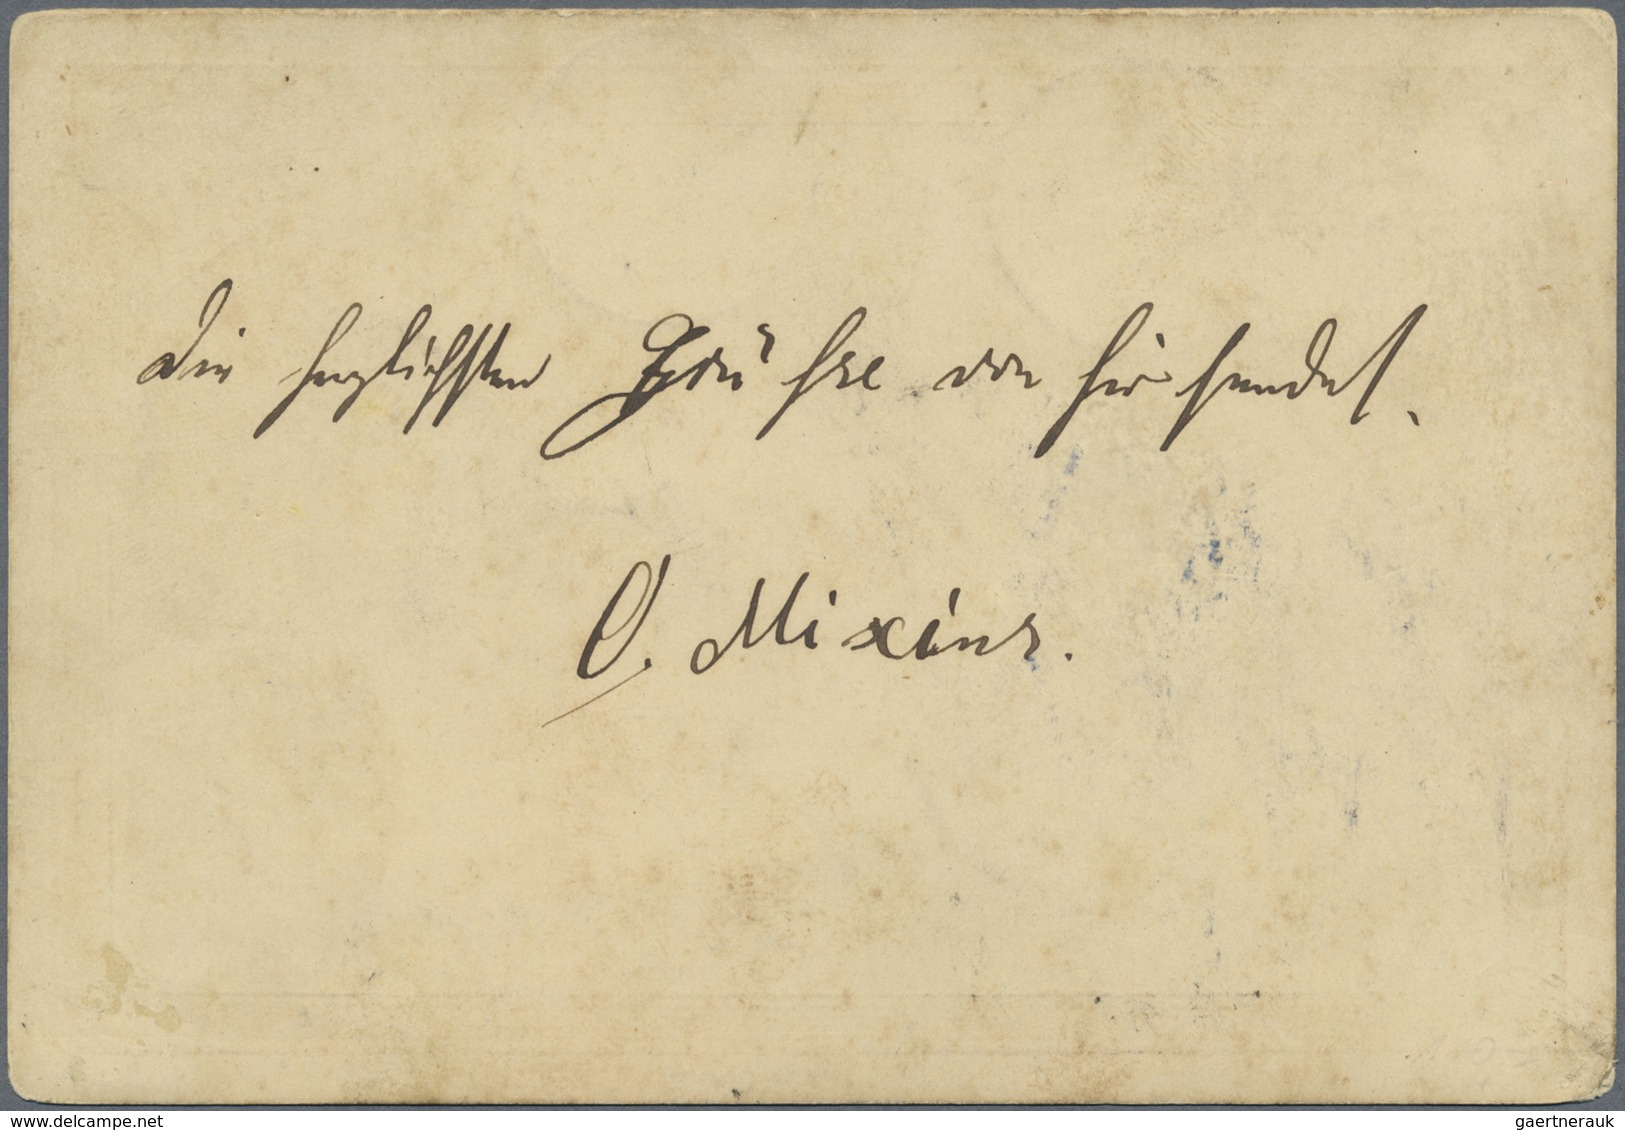 Die herzlichsten Grüße von hier sendet.
O. Mixius.
www.delcampe.net
gaertnerauk